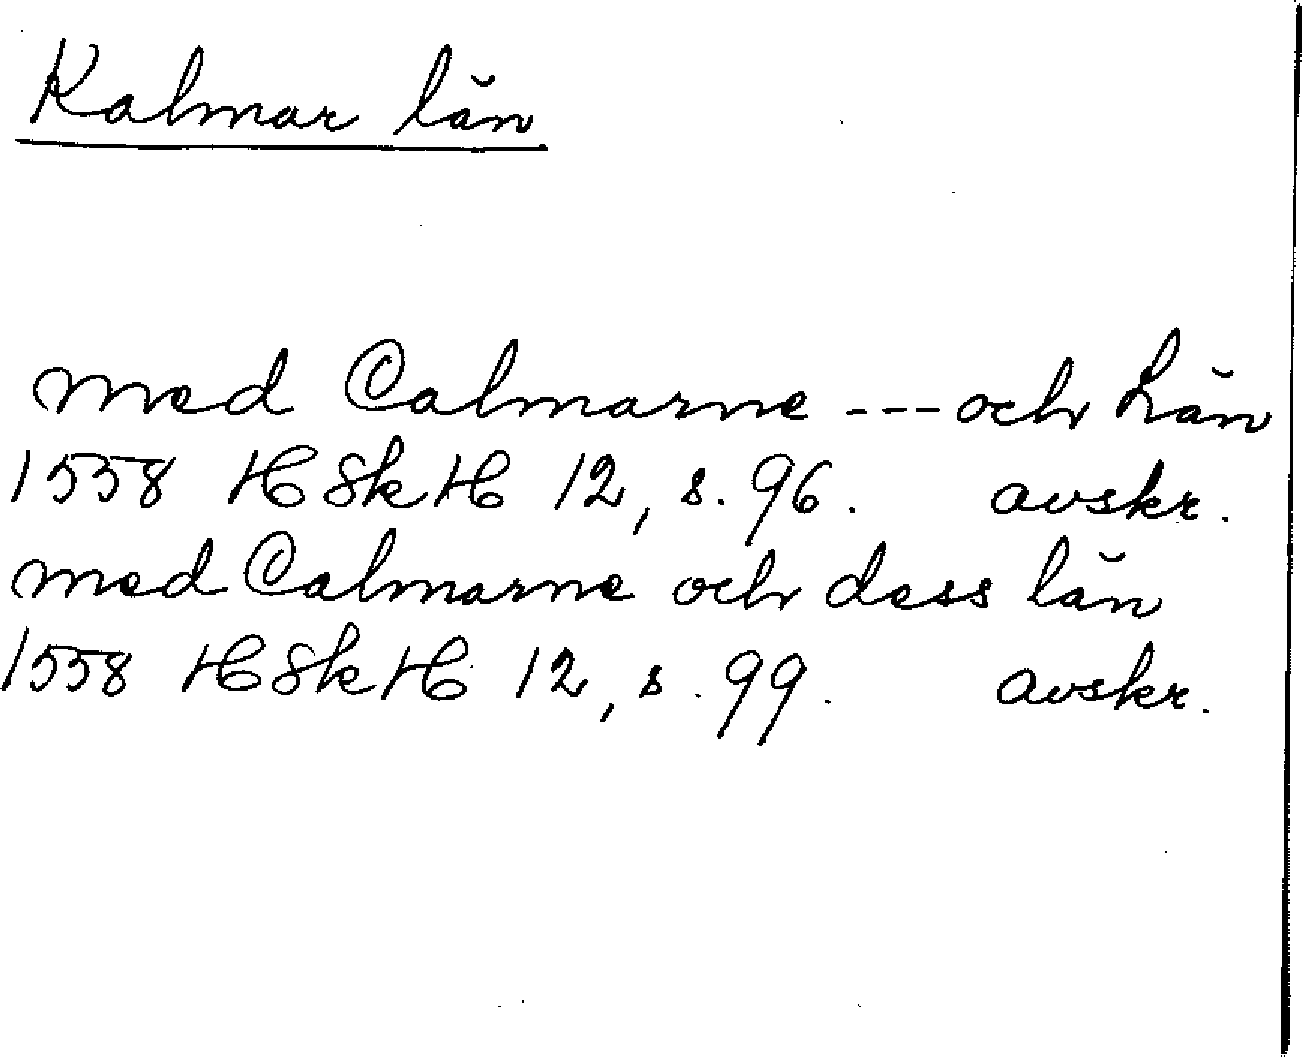 Kalmar län
med Calmarne --- och Län
1558 HSkH 12, s. 96. avskr.
med Calmarne och dess län
1558 HSkH 12, s. 99. avskr.